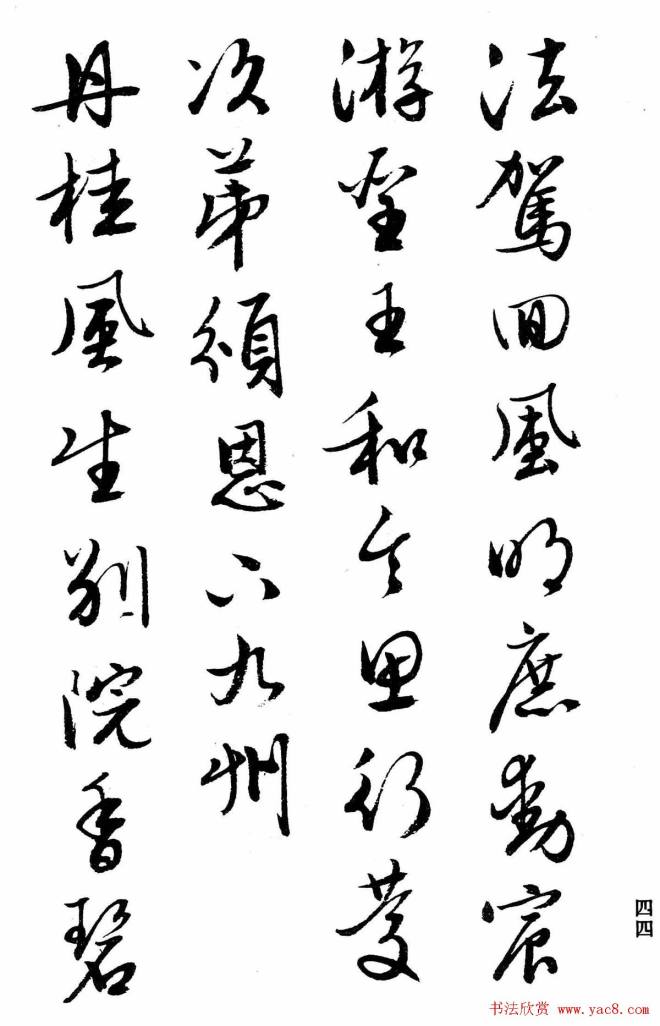 法駕回風明庶動宸
游聖主和令思行慶
次第頒恩下九州
丹桂風生別院香碧
四四
书法欣赏 www.yac8.com